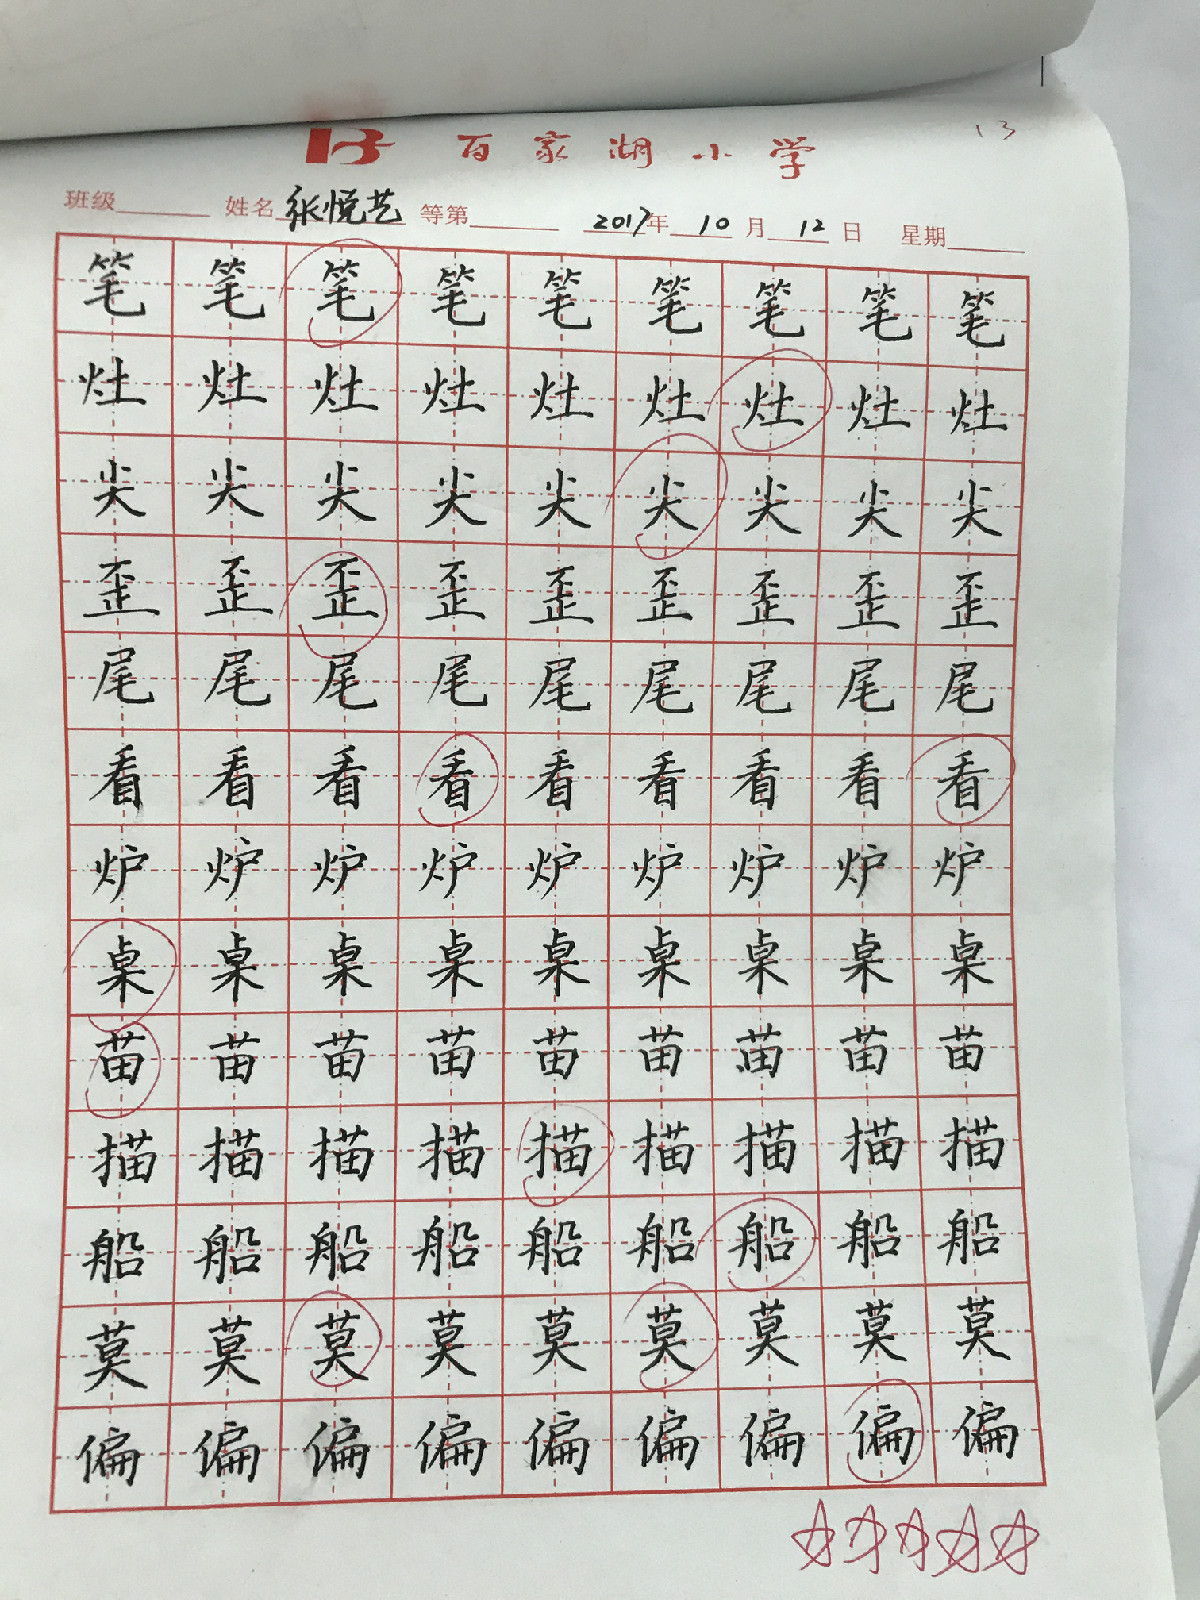 13
百家湖小学
班级 姓名 张悦艺 等第 2017年 10月 12日 星期
笔笔笔笔笔笔笔笔笔
灶灶灶灶灶灶灶灶灶
尖尖尖尖尖尖尖尖尖
歪歪歪歪歪歪歪歪歪
尾尾尾尾尾尾尾尾尾
看看看看看看看看看
炉炉炉炉炉炉炉炉炉
桌桌桌桌桌桌桌桌桌
苗苗苗苗苗苗苗苗苗
描描描描描描描描描
船船船船船船船船船
莫莫莫莫莫莫莫莫莫
偏偏偏偏偏偏偏偏偏